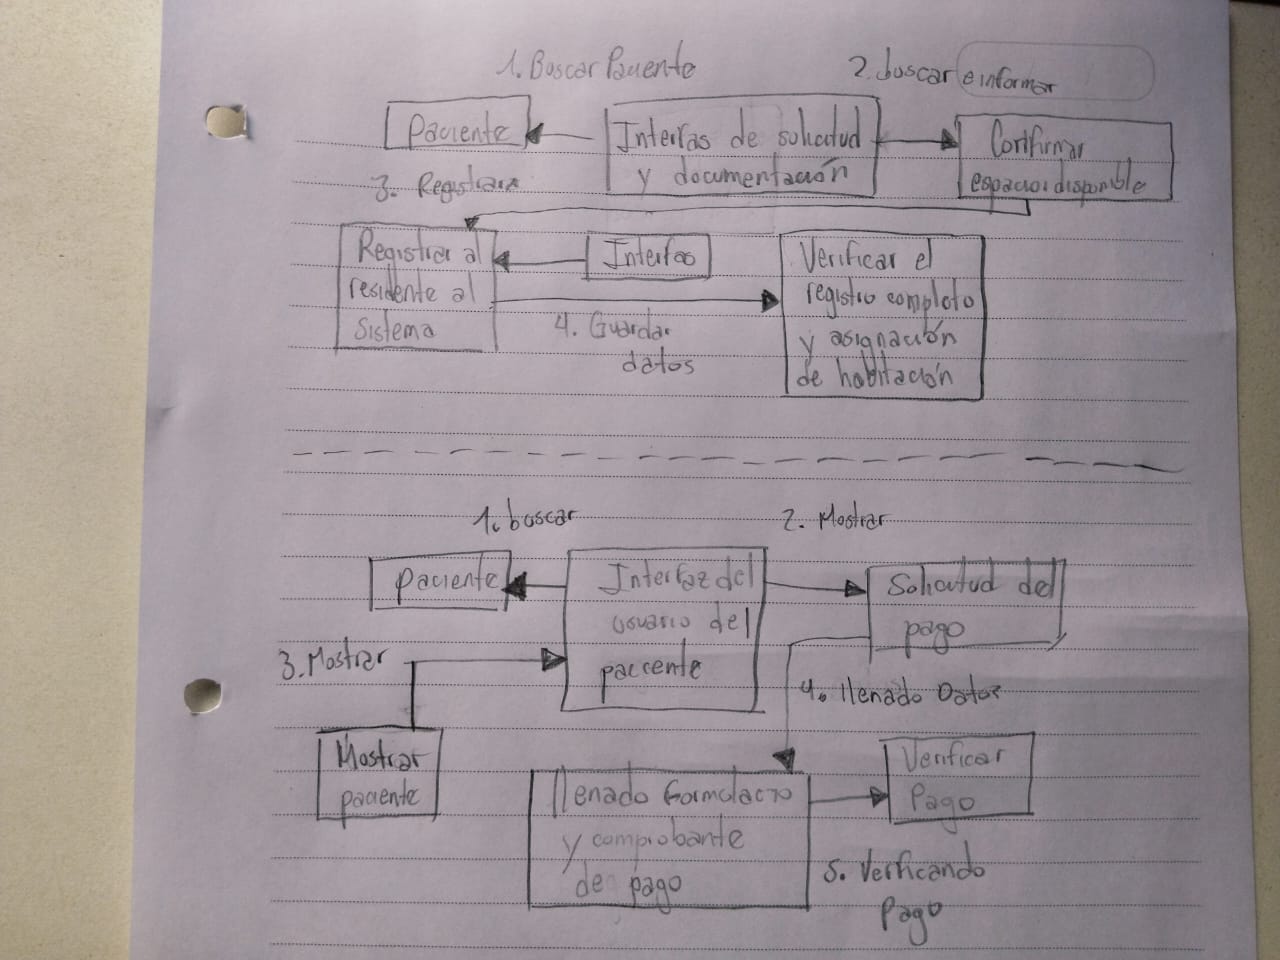 1. Boscar Paciente
2. buscar e informar
Paciente
Interfas de solicitud
y documentación
Confirmar
espacios disponible
3. Registrar
Registrar al
residente al
Sistema
Interfas
Verificar el
registro completo
y asignación
de habitación
4. Guardar
datos
1. buscar
2. Mostrar
paciente
Interfaz del
usuario del
paciente
Solicitud del
pago
3. Mostrar
4. llenado Datos
Mostrar
paciente
llenado formulacro
y comprobante
de pago
Verificar
Pago
5. Verficando
Pago